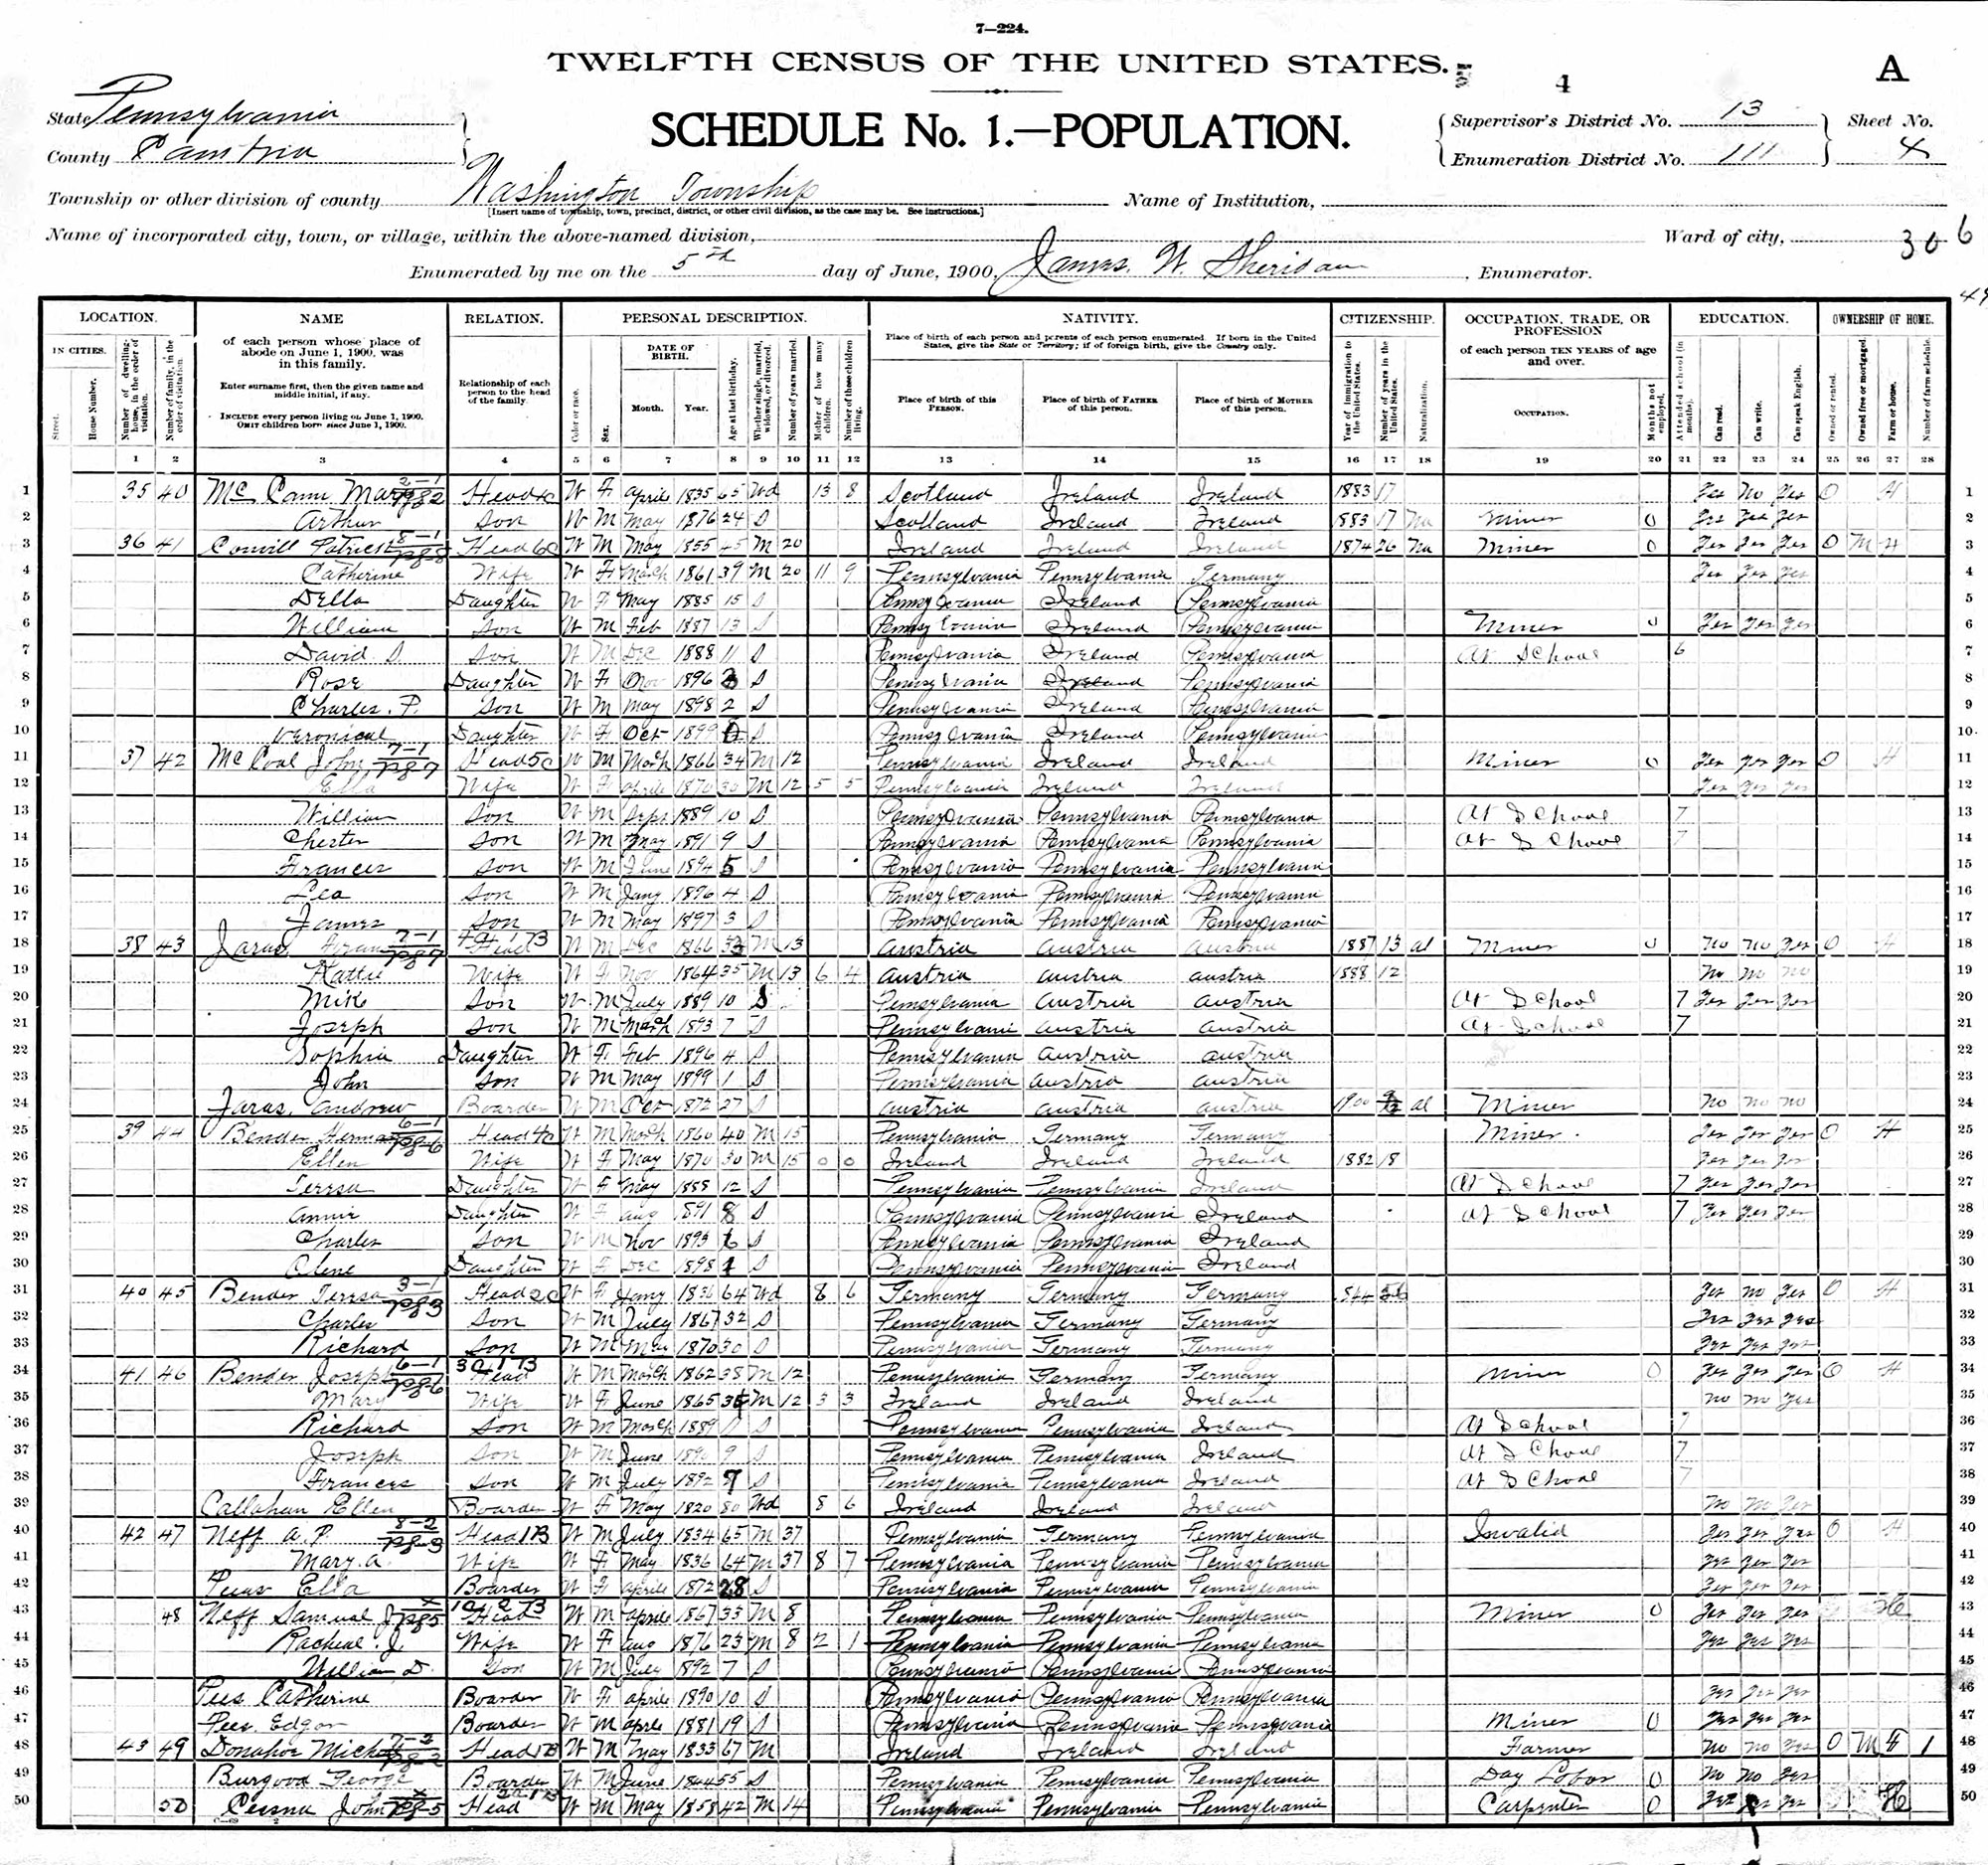 7—224.
TWELFTH CENSUS OF THE UNITED STATES.
4 A
State Pennsylvania
SCHEDULE No. 1.—POPULATION.
Supervisor's District No. 13 Sheet No.
County Cambria
Enumeration District No. 111 4
Township or other division of county Washington Township Name of Institution,
[Insert name of township, town, precinct, district, or other civil division, as the case may be. See instructions.]
Name of incorporated city, town, or village, within the above-named division, Ward of city, 306
Enumerated by me on the 5th day of June, 1900, James. W. Sheridan, Enumerator.
LOCATION. NAME RELATION. PERSONAL DESCRIPTION. NATIVITY. CITIZENSHIP. OCCUPATION, TRADE, OR PROFESSION EDUCATION. OWNERSHIP OF HOME.
IN CITIES. Street. House Number. Number of dwelling-house, in the order of visitation. Number of family, in the order of visitation.
of each person whose place of abode on June 1, 1900, was in this family.
Enter surname first, then the given name and middle initial, if any.
INCLUDE every person living on June 1, 1900. OMIT children born since June 1, 1900.
Relationship of each person to the head of the family.
Color or race. Sex. DATE OF BIRTH. Month. Year. Age at last birthday. Whether single, married, widowed, or divorced. Number of years married. Mother of how many children. Number of these children living.
Place of birth of each person and parents of each person enumerated. If born in the United States, give the State or Territory; if of foreign birth, give the Country only.
Place of birth of this PERSON. Place of birth of FATHER of this person. Place of birth of MOTHER of this person.
Year of immigration to the United States. Number of years in the United States. Naturalization.
of each person TEN YEARS of age and over.
OCCUPATION. Months not employed. Attended school (in months). Can read. Can write. Can speak English. Owned or rented. Owned free or mortgaged. Farm or house. Number of farm schedule.
1 2 3 4 5 6 7 8 9 10 11 12 13 14 15 16 17 18 19 20 21 22 23 24 25 26 27 28
1 35 40 Mc Cann Mary Head W F April 1835 65 Wd 13 8 Scotland Ireland Ireland 1883 17 Yes No Yes O H 1
2 Arthur Son W M May 1876 24 S Scotland Ireland Ireland 1883 17 Na Miner 0 Yes Yes Yes 2
3 36 41 Convill Patrick Head W M May 1855 45 M 20 Ireland Ireland Ireland 1874 26 Na Miner 0 Yes Yes Yes O M H 3
4 Catherine Wife W F March 1861 39 M 20 11 9 Pennsylvania Pennsylvania Germany Yes Yes Yes 4
5 Della Daughter W F May 1885 15 S Pennsylvania Ireland Pennsylvania 5
6 William Son W M Feb 1887 13 S Pennsylvania Ireland Pennsylvania Miner 0 Yes Yes Yes 6
7 David. S Son W M Dec 1888 11 S Pennsylvania Ireland Pennsylvania At School 6 7
8 Rose Daughter W F Nov 1896 3 S Pennsylvania Ireland Pennsylvania 8
9 Charles. P. Son W M May 1898 2 S Pennsylvania Ireland Pennsylvania 9
10 Veronica Daughter W F Oct 1899 S Pennsylvania Ireland Pennsylvania 10
11 37 42 Mc Coal John Head W M March 1866 34 M 12 Pennsylvania Ireland Ireland Miner 0 Yes Yes Yes O H 11
12 Ella Wife W F April 1870 30 M 12 5 5 Pennsylvania Ireland Ireland Yes Yes Yes 12
13 William Son W M Sept 1889 10 S Pennsylvania Pennsylvania Pennsylvania At School 7 13
14 Chester Son W M May 1891 9 S Pennsylvania Pennsylvania Pennsylvania At School 7 14
15 Frances Son W M June 1894 5 S Pennsylvania Pennsylvania Pennsylvania 15
16 Leo Son W M Jany 1896 4 S Pennsylvania Pennsylvania Pennsylvania 16
17 James Son W M May 1897 3 S Pennsylvania Pennsylvania Pennsylvania 17
18 38 43 Jaras Head W M Dec 1866 33 M 13 Austria Austria Austria 1887 13 Al Miner 0 No No Yes O H 18
19 Kattie Wife W F Nov 1864 35 M 13 6 4 Austria Austria Austria 1888 12 No No No 19
20 Mike Son W M July 1889 10 S Pennsylvania Austria Austria At School 7 Yes Yes Yes 20
21 Joseph Son W M March 1893 7 S Pennsylvania Austria Austria At School 7 21
22 Sophia Daughter W F Feb 1896 4 S Pennsylvania Austria Austria 22
23 John Son W M May 1899 1 S Pennsylvania Austria Austria 23
24 Jaras, Andrew Boarder W M Oct 1872 27 S Austria Austria Austria 1900 Al Miner No No No 24
25 39 44 Bender Herman Head W M March 1860 40 M 15 Pennsylvania Germany Germany Miner. Yes Yes Yes O H 25
26 Ellen Wife W F May 1870 30 M 15 0 0 Ireland Ireland Ireland 1882 18 Yes Yes Yes 26
27 Terrsa Daughter W F May 1888 12 S Pennsylvania Pennsylvania Ireland At School 7 Yes Yes Yes 27
28 Annie Daughter W F Aug 1891 8 S Pennsylvania Pennsylvania Ireland At School 7 Yes Yes Yes 28
29 Charles Son W M Nov 1893 6 S Pennsylvania Pennsylvania Ireland 29
30 Olene Daughter W F Dec 1898 1 S Pennsylvania Pennsylvania Ireland 30
31 40 45 Bender Terrsa Head W F Jany 1836 64 Wd 8 6 Germany Germany Germany 1844 56 Yes No Yes O H 31
32 Charles Son W M July 1867 32 S Pennsylvania Germany Germany Yes Yes Yes 32
33 Richard Son W M May 1870 30 S Pennsylvania Germany Germany Yes Yes Yes 33
34 41 46 Bender Joseph Head W M March 1862 38 M 12 Pennsylvania Germany Germany Miner 0 Yes Yes Yes O H 34
35 Mary Wife W F June 1865 M 12 3 3 Ireland Ireland Ireland No No Yes 35
36 Richard Son W M March 1889 11 S Pennsylvania Pennsylvania Ireland At School 7 36
37 Joseph Son W M June 1890 9 S Pennsylvania Pennsylvania Ireland At School 7 37
38 Frances Son W M July 1892 7 S Pennsylvania Pennsylvania Ireland At School 7 38
39 Callahan Ellen Boarder W F May 1820 80 Wd 8 6 Ireland Ireland Ireland No No Yes 39
40 42 47 Neff A. P. Head W M July 1834 65 M 37 Pennsylvania Germany Pennsylvania Invalid Yes Yes Yes O H 40
41 Mary. A. Wife W F May 1836 64 M 37 8 7 Pennsylvania Pennsylvania Pennsylvania Yes Yes Yes 41
42 Ella Boarder W F April 1872 28 S Pennsylvania Pennsylvania Pennsylvania Yes Yes Yes 42
43 48 Neff Samual J Head W M April 1867 33 M 8 Pennsylvania Pennsylvania Pennsylvania Miner 0 Yes Yes Yes H 43
44 Racheal. J. Wife W F Aug 1876 23 M 8 2 1 Pennsylvania Pennsylvania Pennsylvania Yes Yes Yes 44
45 William D. Son W M July 1892 7 S Pennsylvania Pennsylvania Pennsylvania 45
46 Pees Catherine Boarder W F April 1890 10 S Pennsylvania Pennsylvania Pennsylvania Yes Yes Yes 46
47 Pees. Edgar Boarder W M April 1881 19 S Pennsylvania Pennsylvania Pennsylvania Miner 0 Yes Yes Yes 47
48 43 49 Donahoe Head W M May 1833 67 M Ireland Ireland Ireland Farmer No No Yes O M F 1 48
49 Burgood George Boarder W M June 1844 55 S Pennsylvania Pennsylvania Pennsylvania Day Labor 0 No No Yes 49
50 50 Cessna John Head W M May 1858 42 M 14 Pennsylvania Pennsylvania Pennsylvania Carpenter 0 Yes Yes Yes H 50